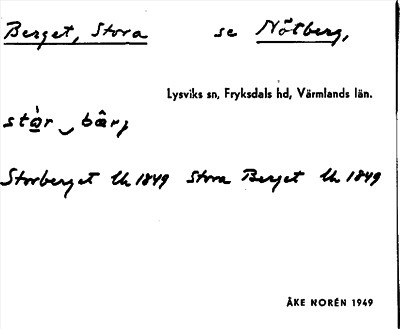 Berget, Stora se Nötberg,
Lysviks sn, Fryksdals hd, Värmlands län.
Storberget Uk 1849 Stora Berget Uk 1849
ÅKE NORÉN 1949